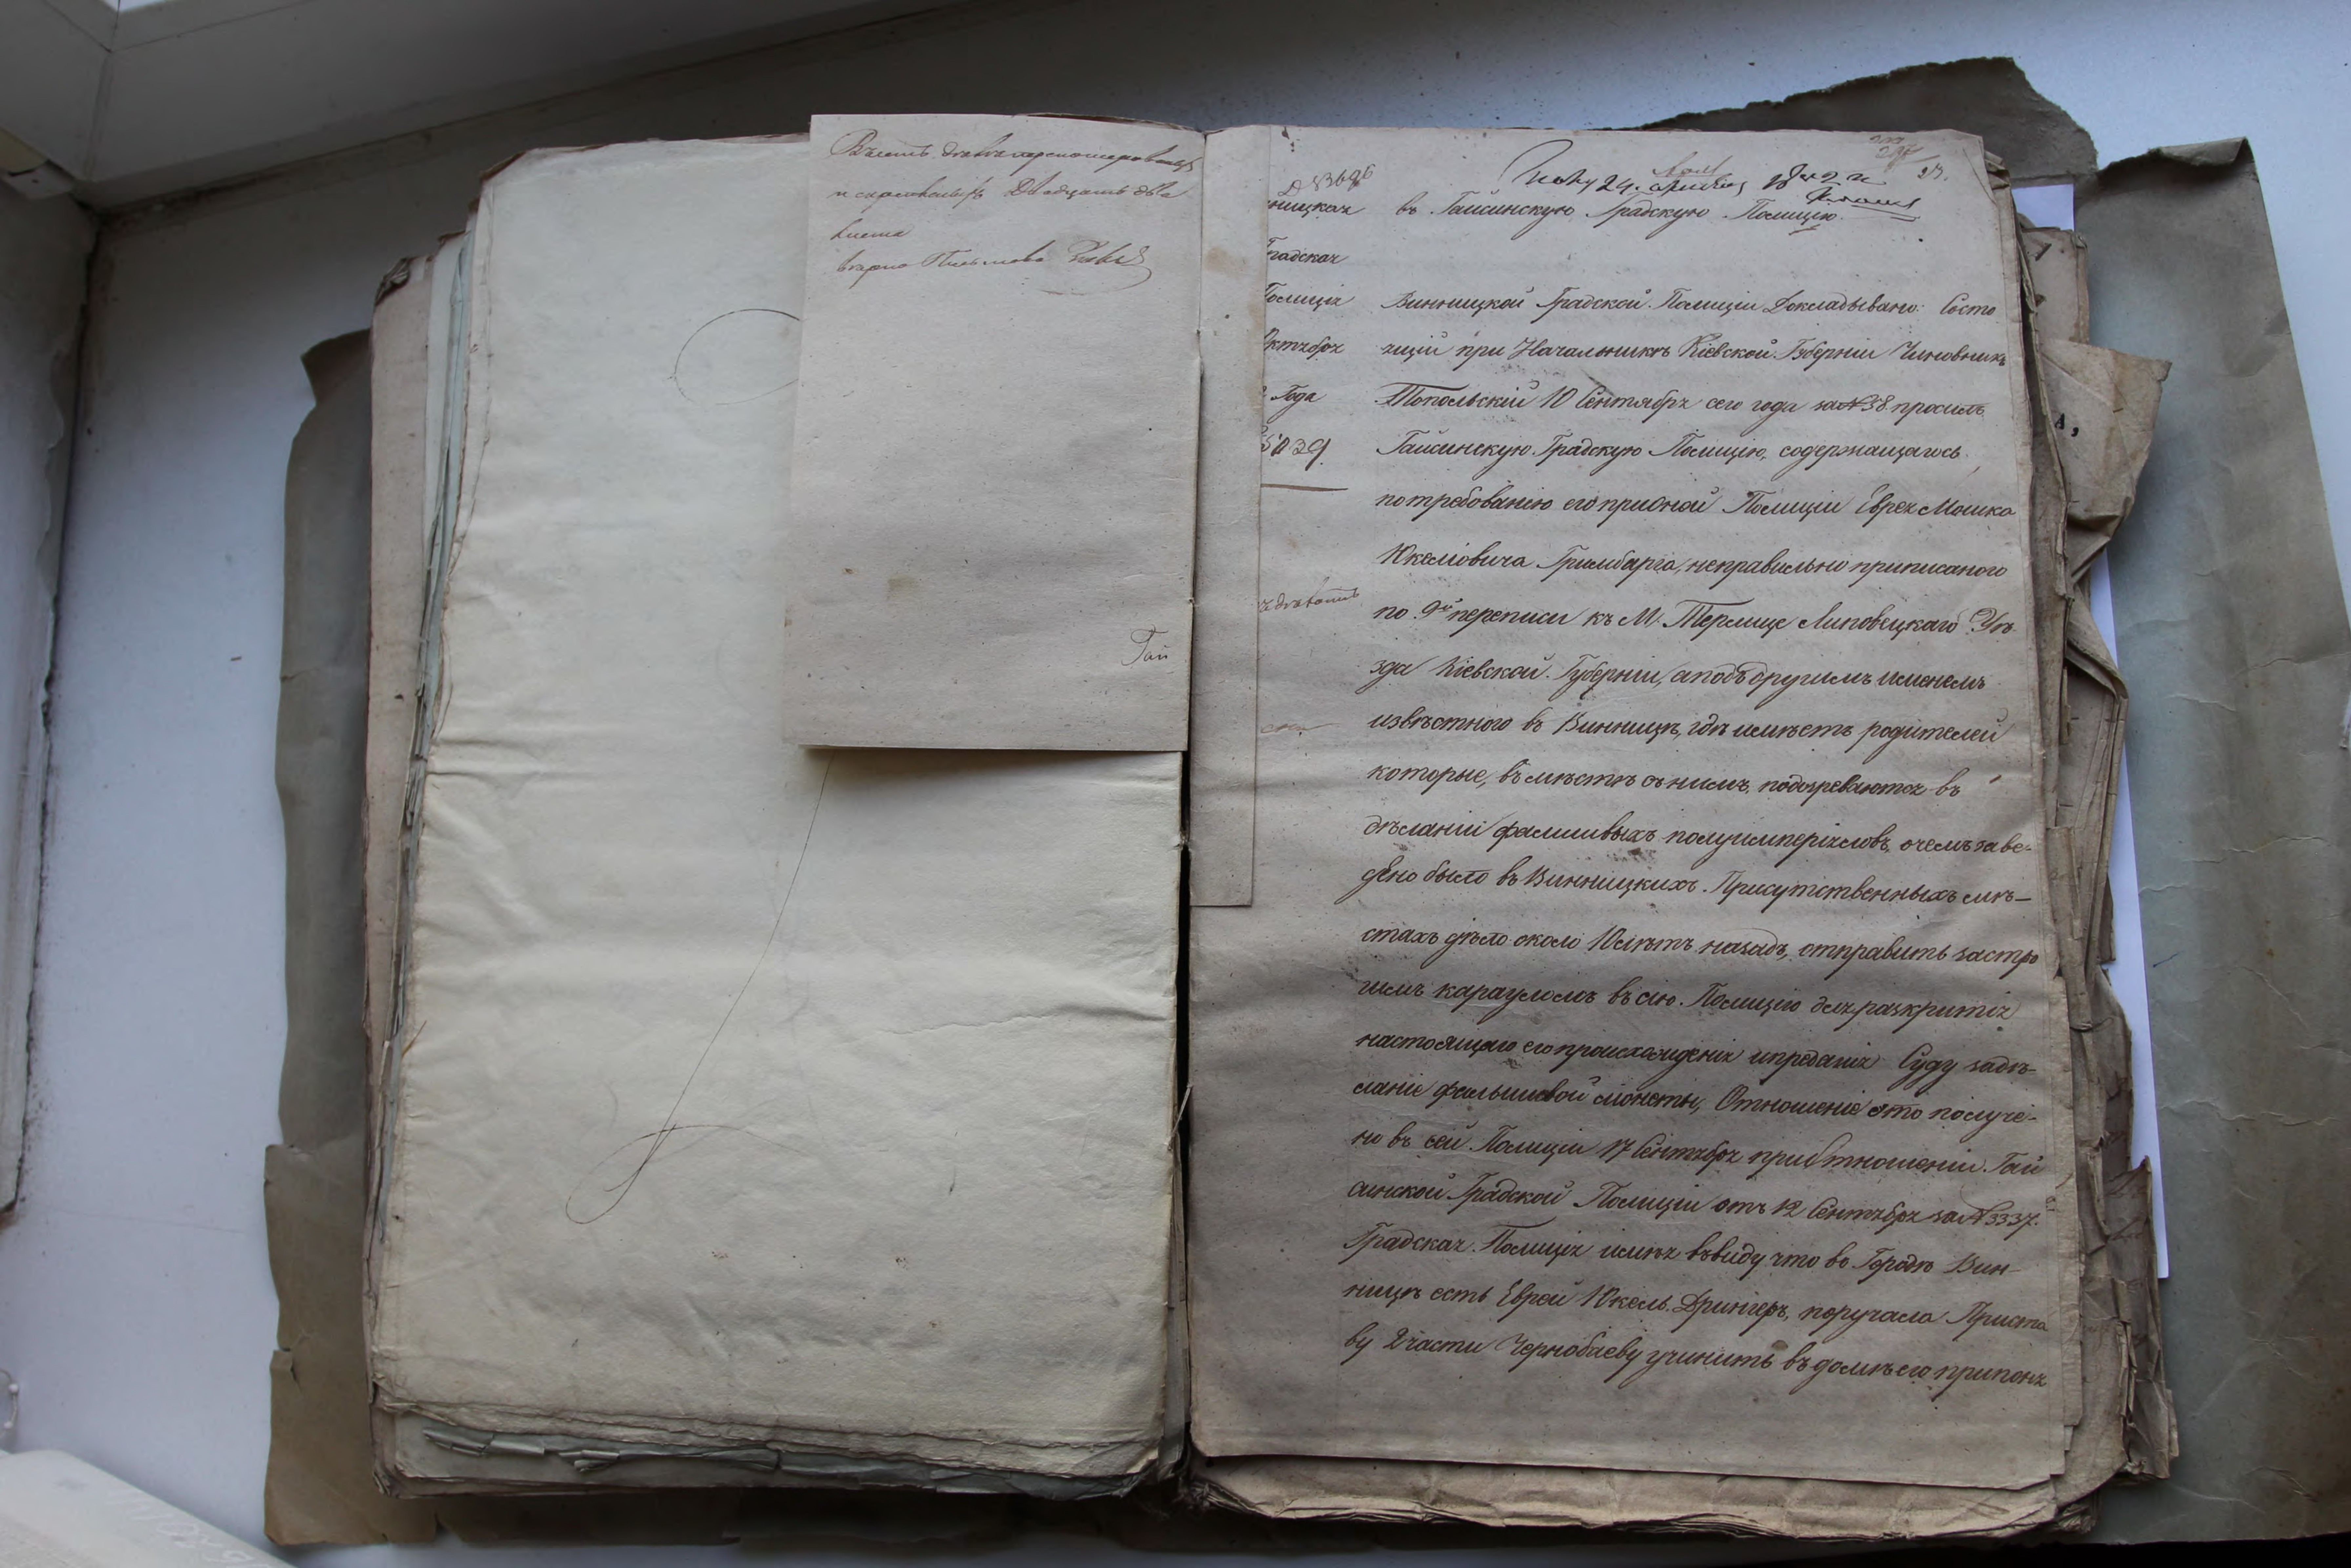 листа
Гай
№ 3686
ницкая
въ Гайсинскую Градскую Полицію.
Градская
Полиція
Октября
Года
5029.
Винницкой Градской Полиціи Докладывано: Состо
ящій при Начальникѣ Кіевской Губерніи Чиновникъ
Топольскій 10 Сентября сего года за № 58 просилъ
Гайсинскую Градскую Полицію, содержащагось
по требованію его при оной Полиціи Еврея Мошка
Юкелiовича Гримбарга, неправильно приписаного
по 9й переписи къ М. Терлице Липовецкаго Уѣ
зда Кіевской Губерніи, а подъ другимъ именемъ
извѣстного въ Винницѣ, гдѣ имѣетъ родителей
которые, въмѣстѣ съ нимъ, подозреваются въ
дѣланіи фалшивыхъ полуимперіяловъ, о чемъ заве-
дено было въ Винницкихъ Присутственныхъ мѣ-
стахъ дѣло около 10 лѣтъ назадъ, отправить за стро
гимъ карауломъ въ сію Полицію для разкритія
настоящаго его происхожденія и преданія Суду за дѣ-
ланіе фальшивой монеты, Отношеніе это получе-
но въ сей Полиціи 17 Сентября при Отношеніи Гай
синской Градской Полиціи отъ 12 Сентября за № 3337.
Градская Полиція имѣя въ виду что въ Городѣ Вин-
ницѣ есть Еврей Юкель Дрингеръ, поручала Приста
ву 2 части Чернобаеву учинить въ домѣ его при поня